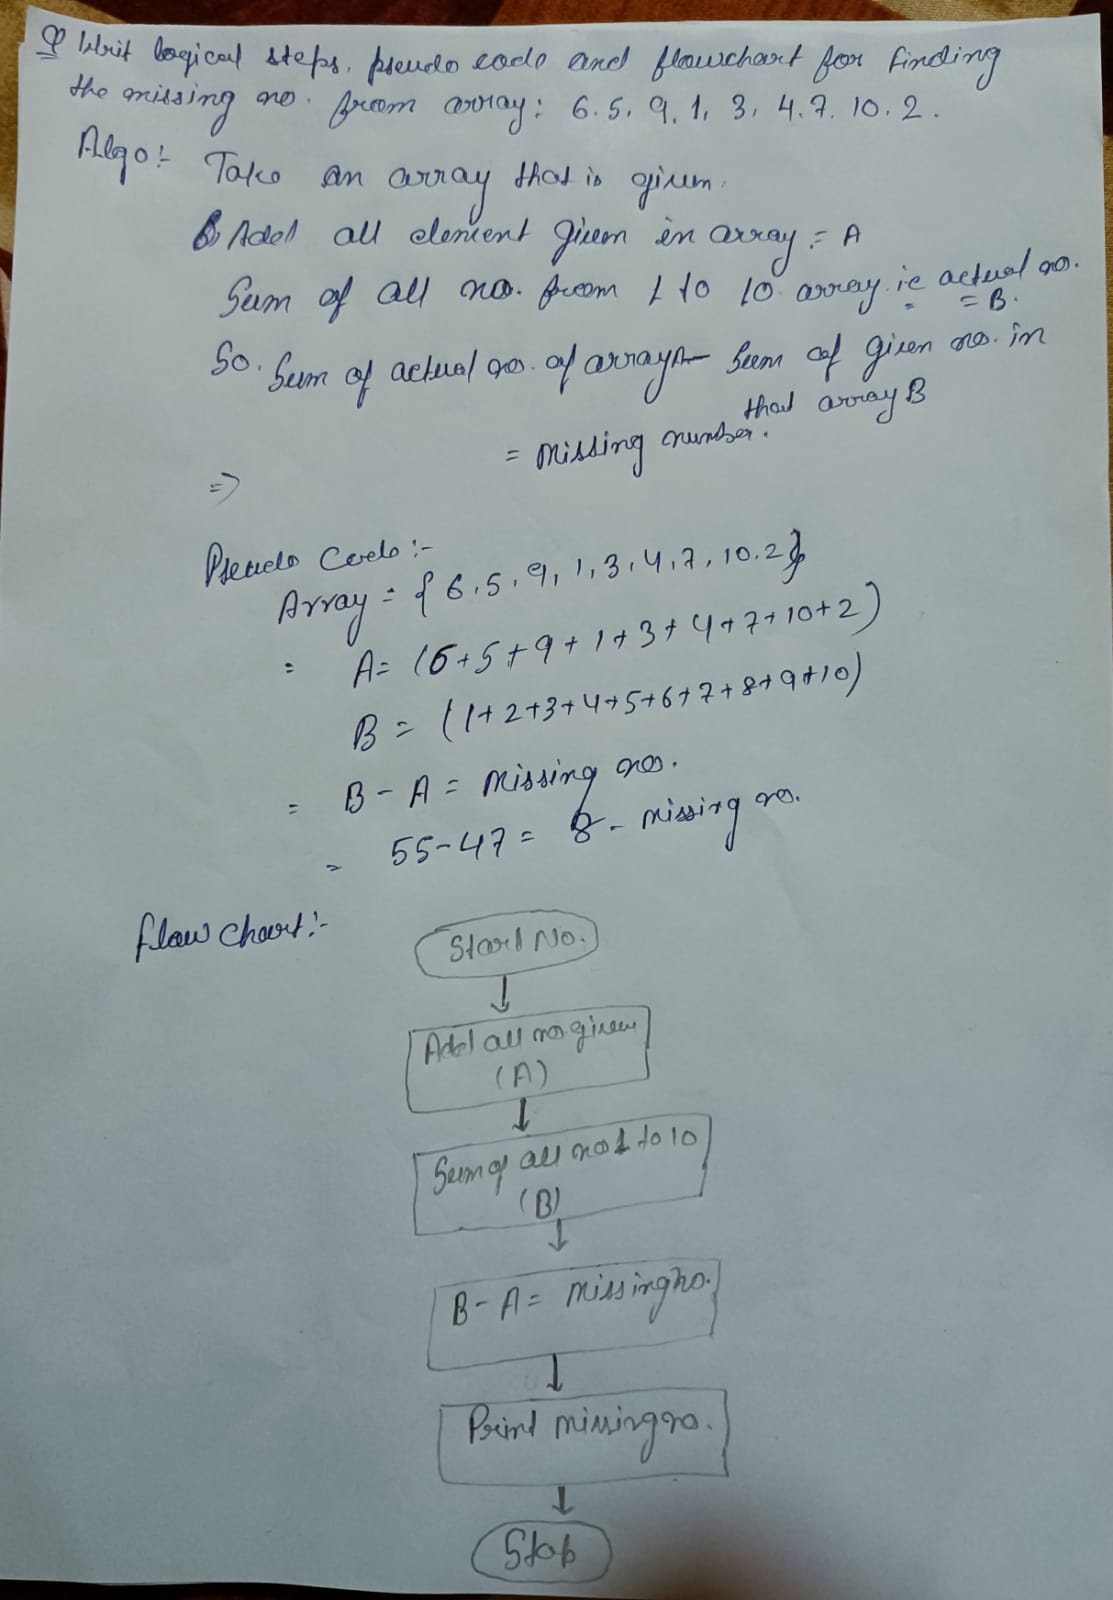 Q Writ logical steps, pseudo code and flowchart for finding
the missing no. from array: 6. 5, 9, 1, 3, 4. 7. 10. 2.
Algo:- Take an array that is given.
Add all element given in array = A
Sum of all no. from 1 to 10 array ie actual no.
= B.
So. Sum of actual no. of array - Sum of given no. in
that array B
= missing number.
=>
Pseudo Code:-
Array = { 6, 5, 9, 1, 3, 4, 7, 10. 2}
= A = (6+5+9+1+3+4+7+10+2)
B = (1+2+3+4+5+6+7+8+9+10)
= B - A = missing no.
= 55-47 = 8 - missing no.
flow chart:-
Start No.
Add all no. given
(A)
Sum of all no 1 to 10
(B)
B - A = missing no.
Print missing no.
Stop